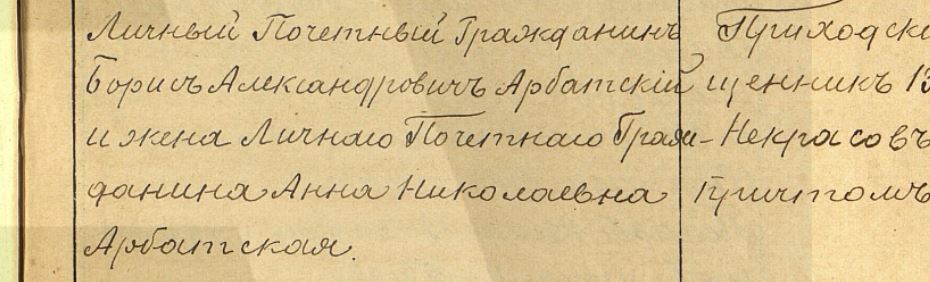 Личный Почетный Гражданинъ
Борисъ Александровичъ Арбатскій
и жена Личнаго Почетнаго Граж-
данина Анна Николаевна
Арбатская.
Приходск
щенникъ
Некрасовъ
Причтомъ